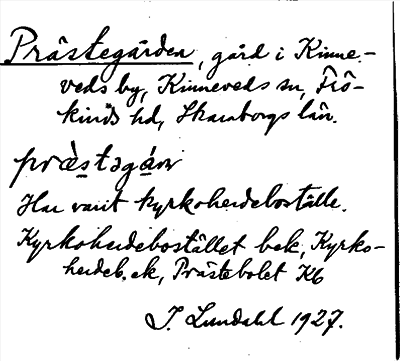 Prästegården, gård i Kinne-
veds by, Kinneveds sn, Frö-
kinds hd, Skaraborgs län.
præ̀stəgán
Har varit kyrkoherdeboställe.
Kyrkoherdebostället bek, Kyrko-
herdeb. ek, Prästebolet Kb
J. Lundahl 1927.